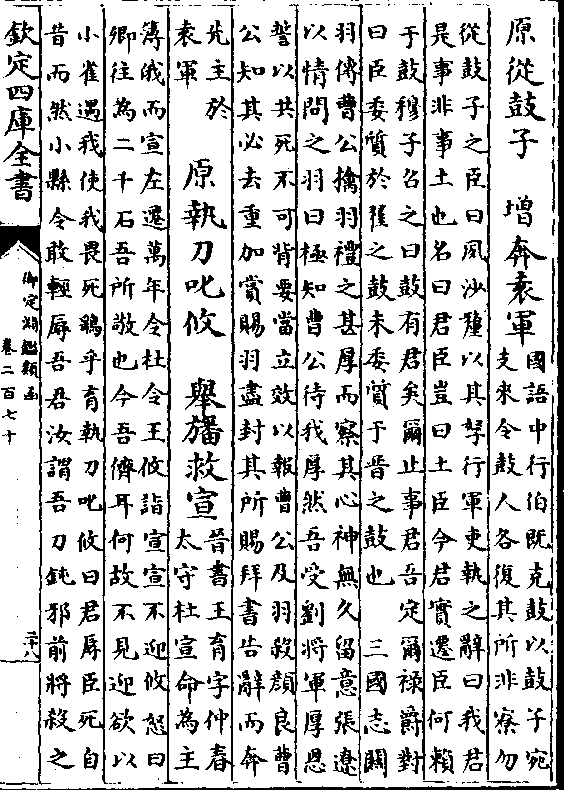 原從鼓子　增奔袁軍
國語中行伯既克鼓以鼓子宛
支來令鼓人各復其所非寮勿
從鼓子之臣曰夙沙釐以其孥行軍吏執之辭曰我君
是事非事土也名曰君臣豈曰土臣今君實遷臣何賴
于鼓穆子召之曰鼓有君矣爾止事君吾定爾祿爵對
曰臣委質於翟之鼓未委質于晉之鼓也　三國志關
羽傳曹公擒羽禮之甚厚而察其心神無久留意張遼
以情問之羽曰極知曹公待我厚然吾受劉將軍厚恩
誓以共死不可背要當立效以報曹公及羽殺顔良曹
公知其必去重加賞賜羽盡封其所賜拜書告辭而奔
先主於
袁軍
原執刀叱攸　舉旛救宣
晉書王育字仲春
太守杜宣命為主
簿俄而宣左遷萬年令杜令王攸詣宣宣不迎攸怒曰
卿往為二千石吾所敬也今吾儕耳何故不見迎欲以
小雀遇我使我畏死鷂乎育執刀叱攸曰君辱臣死自
昔而然小縣令敢輕辱吾君汝謂吾刀鈍邪前將殺之
欽定四庫全書
御定淵鑑類函
卷二百七十